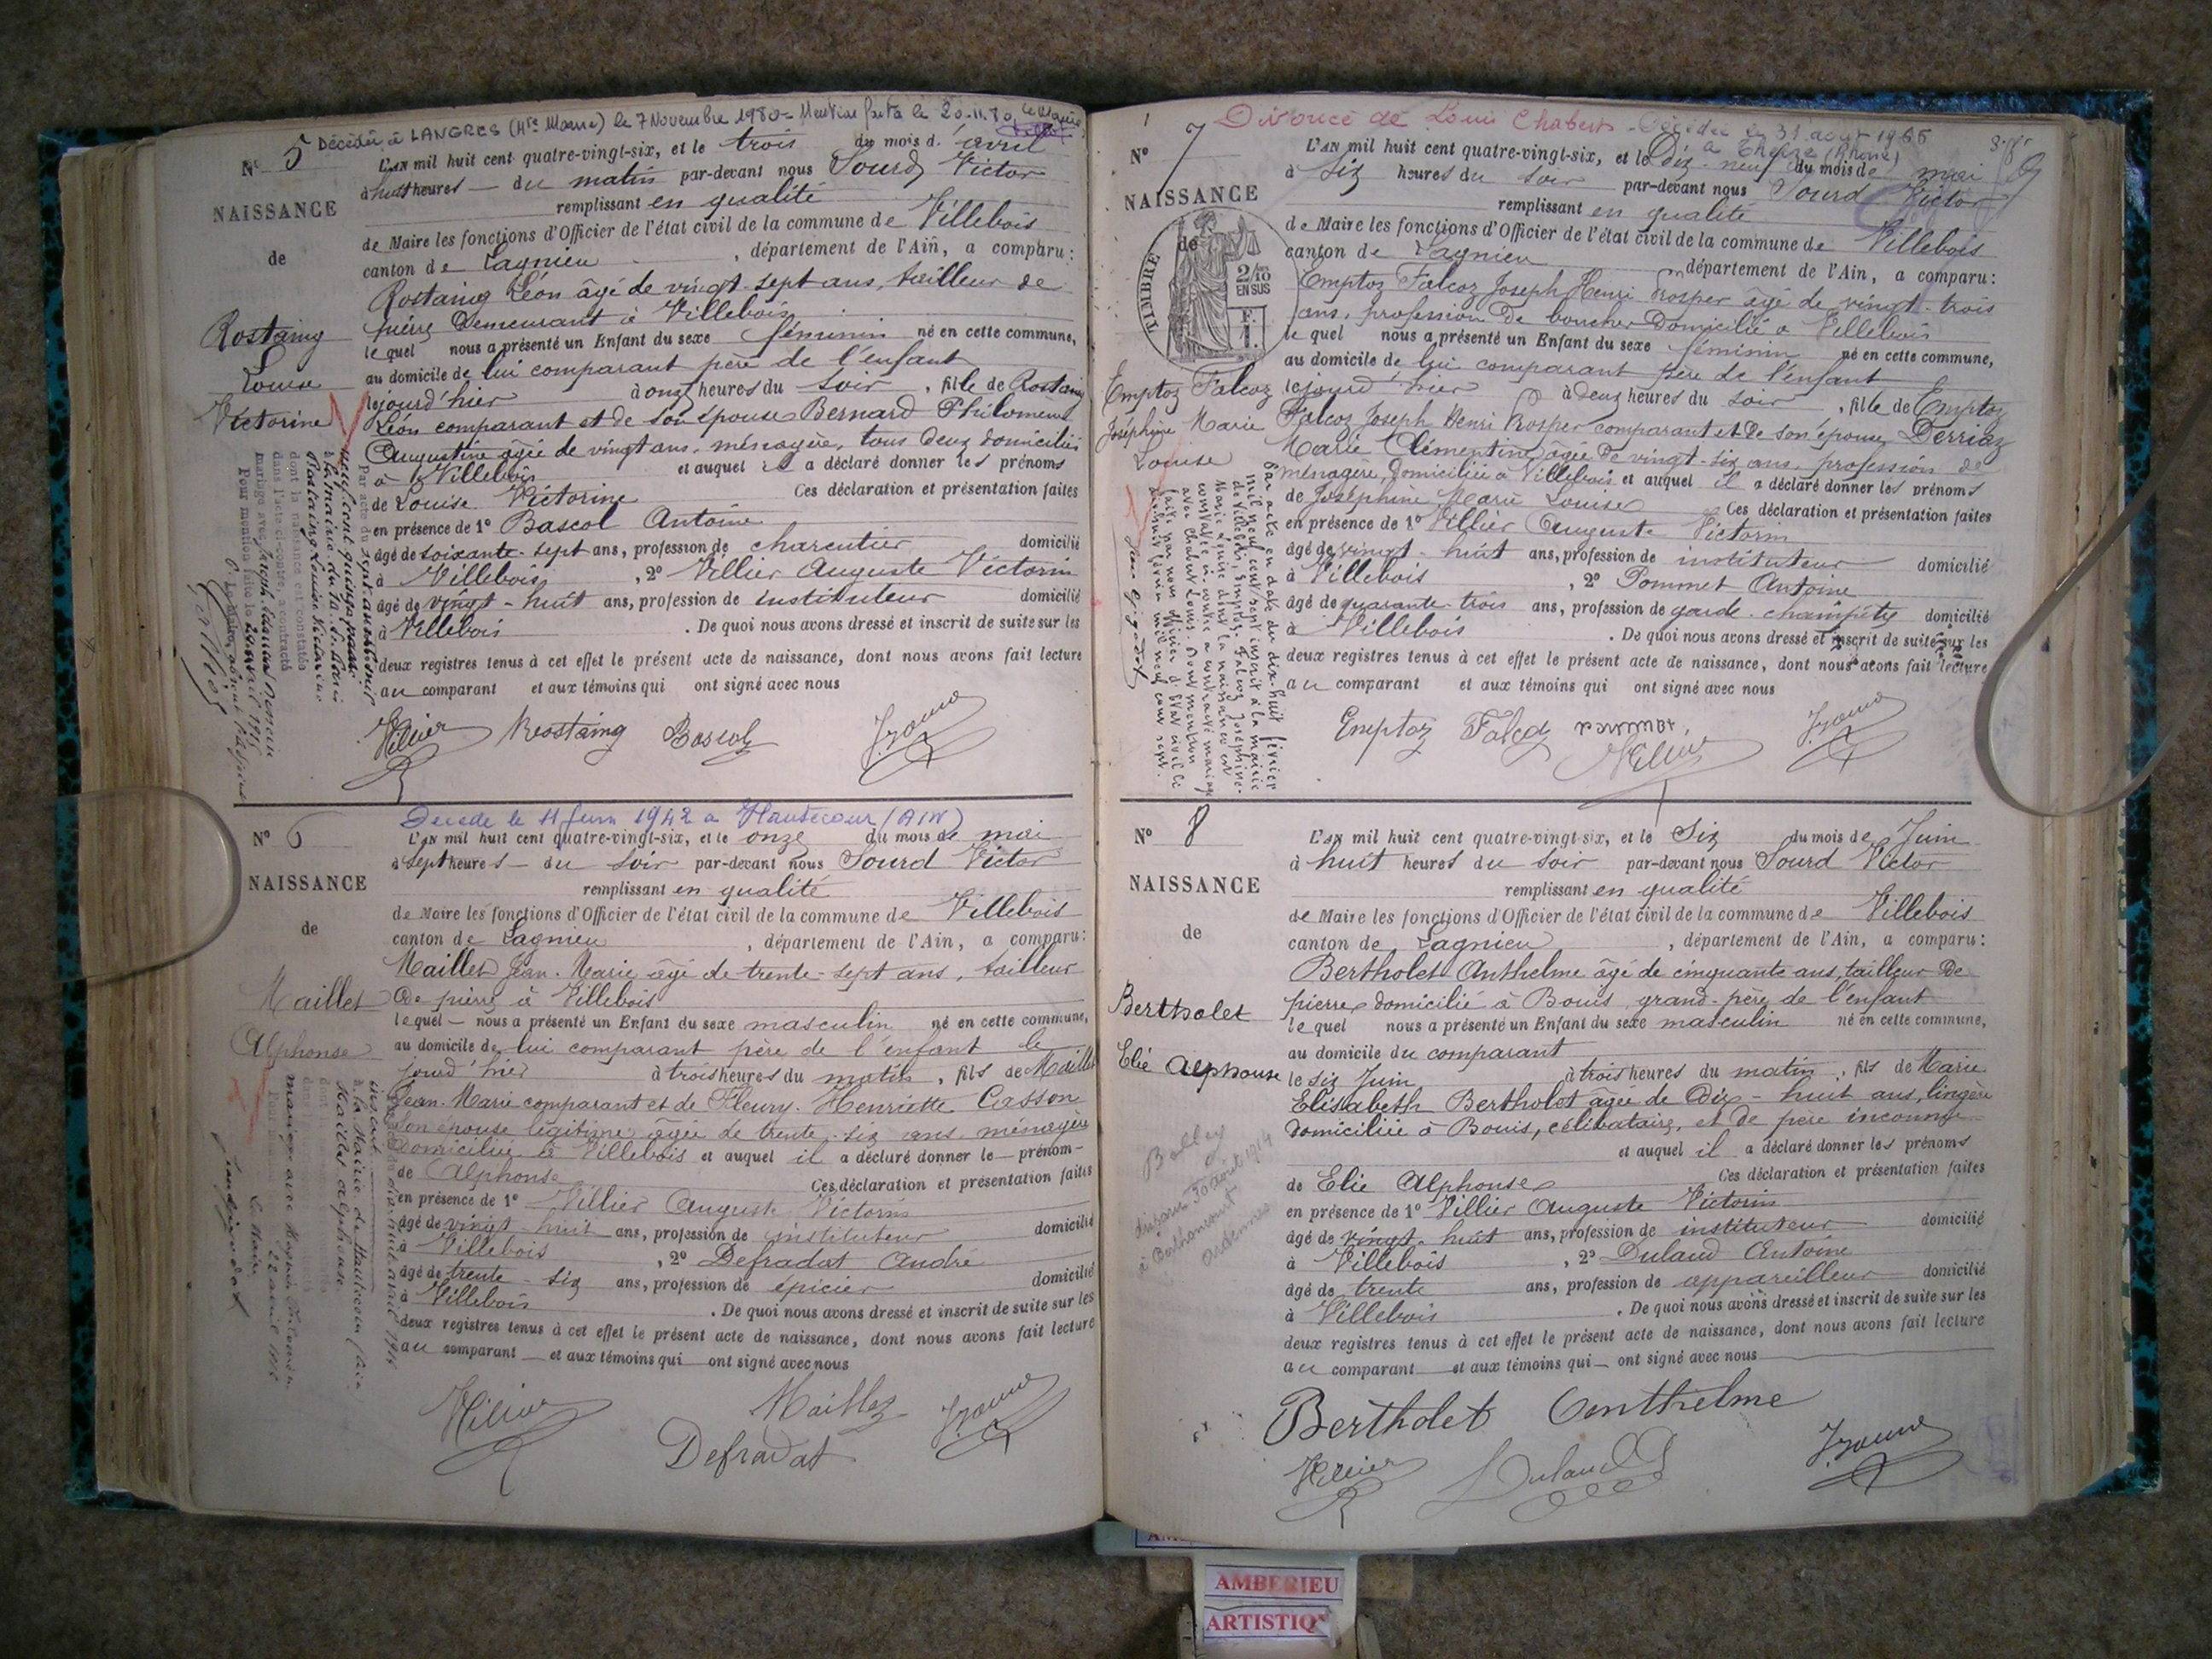 Décédée à LANGRES (Hte Marne) le 7 Novembre 1980 - Mention faite le 20.11.80
N° 5
NAISSANCE
de
Rostaing
Louise
Victorine
L'AN mil huit cent quatre-vingt-six, et le trois du mois d'avril
à huit heures du matin par-devant nous Sourd Victor
remplissant en qualité
de Maire les fonctions d'Officier de l'état civil de la commune de Villebois
canton de Lagnieu, département de l'Ain, a comparu:
Rostaing Léon âgé de vingt-sept ans, tailleur de
pierre demeurant à Villebois
lequel nous a présenté un Enfant du sexe féminin né en cette commune,
au domicile de lui comparant père de l'enfant
le jourd'hier à onze heures du soir, fille de Rostaing
Léon comparant et de son épouse Bernard Philomène
Augustine âgée de vingt ans, ménagère, tous deux domiciliés
à Villebois et auquel il a déclaré donner les prénoms
de Louise Victorine Ces déclaration et présentation faites
en présence de 1° Bascol Antoine
âgé de soixante-sept ans, profession de charcutier domicilié
à Villebois, 2° Villier Auguste Victorin
âgé de vingt-huit ans, profession de instituteur domicilié
à Villebois. De quoi nous avons dressé et inscrit de suite sur les
deux registres tenus à cet effet le présent acte de naissance, dont nous avons fait lecture
au comparant et aux témoins qui ont signé avec nous
Villier Rostaing Bascol
Décédé le 11 Juin 1942 à Hautecour (AIN)
N° 6
NAISSANCE
de
Maillet
Alphonse
L'AN mil huit cent quatre-vingt-six, et le onze du mois de mai
à sept heures du soir par-devant nous Sourd Victor
remplissant en qualité
de Maire les fonctions d'Officier de l'état civil de la commune de Villebois
canton de Lagnieu, département de l'Ain, a comparu:
Maillet Jean-Marie âgé de trente-sept ans, tailleur
de pierre à Villebois
lequel nous a présenté un Enfant du sexe masculin né en cette commune,
au domicile de lui comparant père de l'enfant le
jourd'hier à trois heures du matin, fils de Maillet
Jean-Marie comparant et de Fleury Henriette Casson
son épouse légitime âgée de trente-six ans, ménagère
domiciliée à Villebois et auquel il a déclaré donner le prénom
de Alphonse Ces déclaration et présentation faites
en présence de 1° Villier Auguste Victorin
âgé de vingt-huit ans, profession de instituteur domicilié
à Villebois, 2° Defradat André
âgé de trente-six ans, profession de épicier domicilié
à Villebois. De quoi nous avons dressé et inscrit de suite sur les
deux registres tenus à cet effet le présent acte de naissance, dont nous avons fait lecture
au comparant et aux témoins qui ont signé avec nous
Villier Maillet
Defradat
Divorcé de Louis Chabert - Décédée le 31 août 1966
N° 7
NAISSANCE
de
TIMBRE
2/10 EN SUS
F. 1.
Emptoz Falcoz
Joséphine Marie
Louise
L'AN mil huit cent quatre-vingt-six, et le Dix-neuf du mois de mai
à Six heures du soir par-devant nous Sourd Victor
remplissant en qualité
de Maire les fonctions d'Officier de l'état civil de la commune de Villebois
canton de Lagnieu, département de l'Ain, a comparu:
Emptoz Falcoz Joseph Henri Prosper âgé de vingt-trois
ans, profession de boucher domicilié à Villebois
lequel nous a présenté un Enfant du sexe féminin né en cette commune,
au domicile de lui comparant père de l'enfant
le jourd'hier à deux heures du soir, fille de Emptoz
Falcoz Joseph Henri Prosper comparant et de son épouse Derriaz
Marie Clémentine âgée de vingt-six ans, profession de
ménagère, domiciliée à Villebois et auquel il a déclaré donner les prénoms
de Joséphine Marie Louise Ces déclaration et présentation faites
en présence de 1° Villier Auguste Victorin
âgé de vingt-huit ans, profession de instituteur domicilié
à Villebois, 2° Pommet Antoine
âgé de quarante-trois ans, profession de garde-champêtre domicilié
à Villebois. De quoi nous avons dressé et inscrit de suite sur les
deux registres tenus à cet effet le présent acte de naissance, dont nous avons fait lecture
au comparant et aux témoins qui ont signé avec nous
Emptoz Falcoz Pommet
Villier
N° 8
NAISSANCE
de
Bertholet
Elie Alphonse
L'AN mil huit cent quatre-vingt-six, et le Six du mois de Juin
à huit heures du soir par-devant nous Sourd Victor
remplissant en qualité
de Maire les fonctions d'Officier de l'état civil de la commune de Villebois
canton de Lagnieu, département de l'Ain, a comparu:
Bertholet Anthelme âgé de cinquante ans, tailleur de
pierre domicilié à Bouis, grand-père de l'enfant
lequel nous a présenté un Enfant du sexe masculin né en cette commune,
au domicile du comparant
le six Juin à trois heures du matin, fils de Marie
Elisabeth Bertholet âgée de Dix-huit ans, lingère
domiciliée à Bouis, célibataire, et de père inconnu
et auquel il a déclaré donner les prénoms
de Elie Alphonse Ces déclaration et présentation faites
en présence de 1° Villier Auguste Victorin
âgé de vingt-huit ans, profession de instituteur domicilié
à Villebois, 2° Dulaud Antoine
âgé de trente ans, profession de appareilleur domicilié
à Villebois. De quoi nous avons dressé et inscrit de suite sur les
deux registres tenus à cet effet le présent acte de naissance, dont nous avons fait lecture
au comparant et aux témoins qui ont signé avec nous
Bertholet Anthelme
Villier Dulaud
AMBERIEU
ARTISTIQ